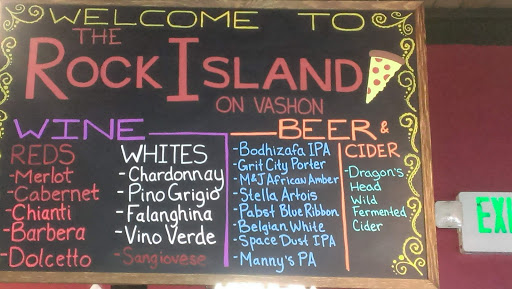 WELCOME TO
THE
ROCK ISLAND
ON VASHON
WINE
REDS
-Merlot
-Cabernet
-Chianti
-Barbera
-Dolcetto
WHITES
-Chardonnay
-Pino Grigio
-Falanghina
-Vino Verde
-Sangiovese
BEER &
CIDER
-Bodhizafa IPA
-Grit City Porter
-M&J African Amber
-Stella Artois
-Pabst Blue Ribbon
-Belgian White
-Space Dust IPA
-Manny's PA
-Dragon's
Head
Wild
Fermented
Cider
EXI